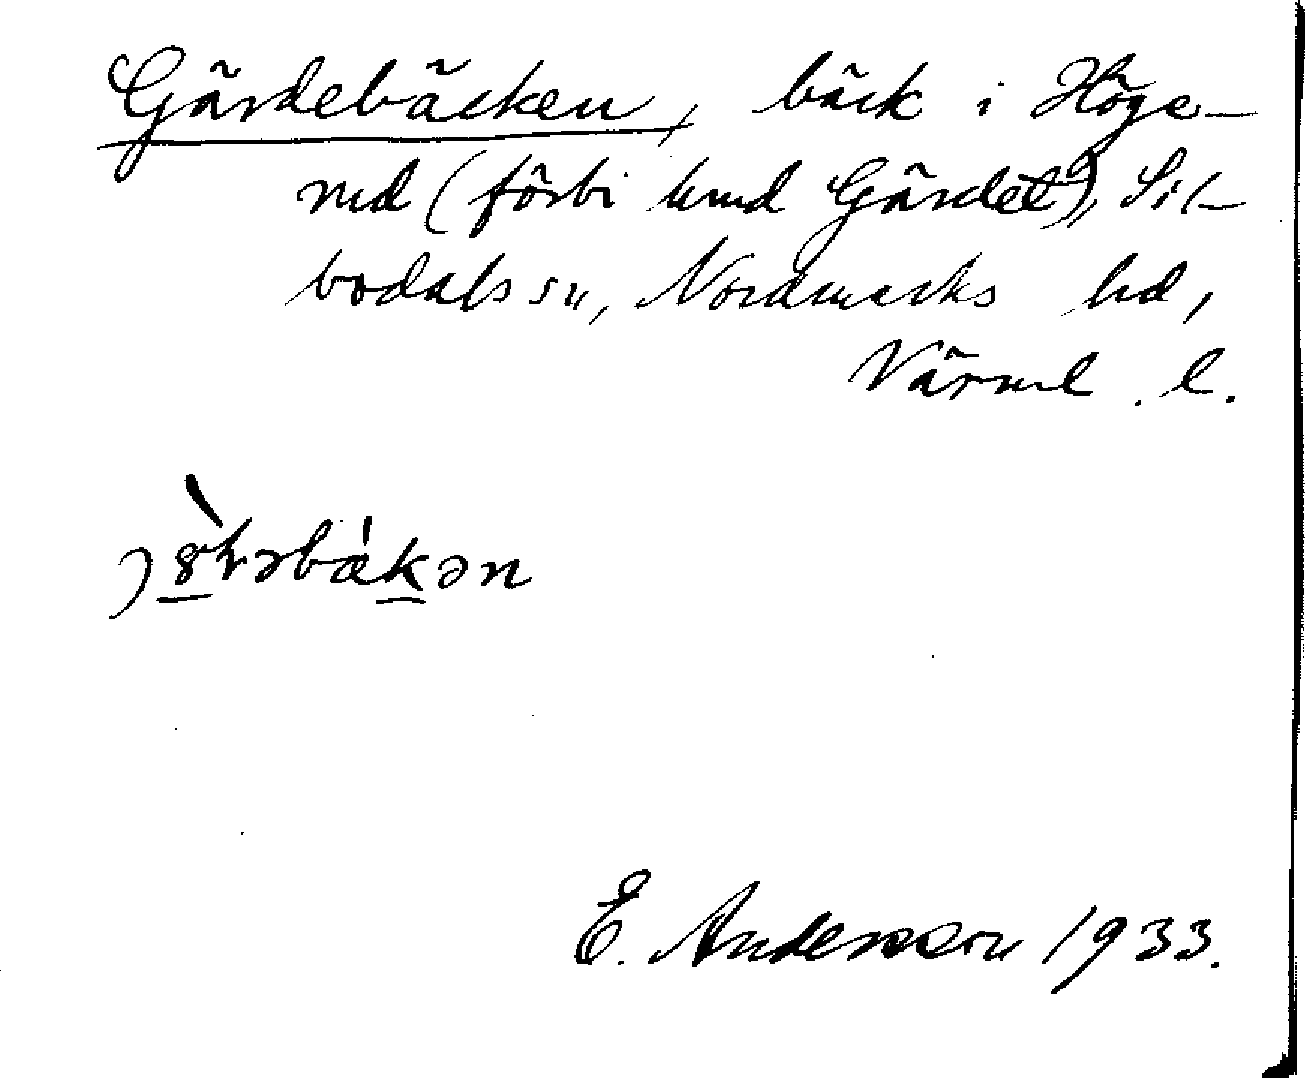 Gärdebäcken, bäck i Högs-
rud (förbi hmd Gärdet), Sil-
bodals sn, Nordmarks hd,
Värml. l.
E. Andersson 1933.